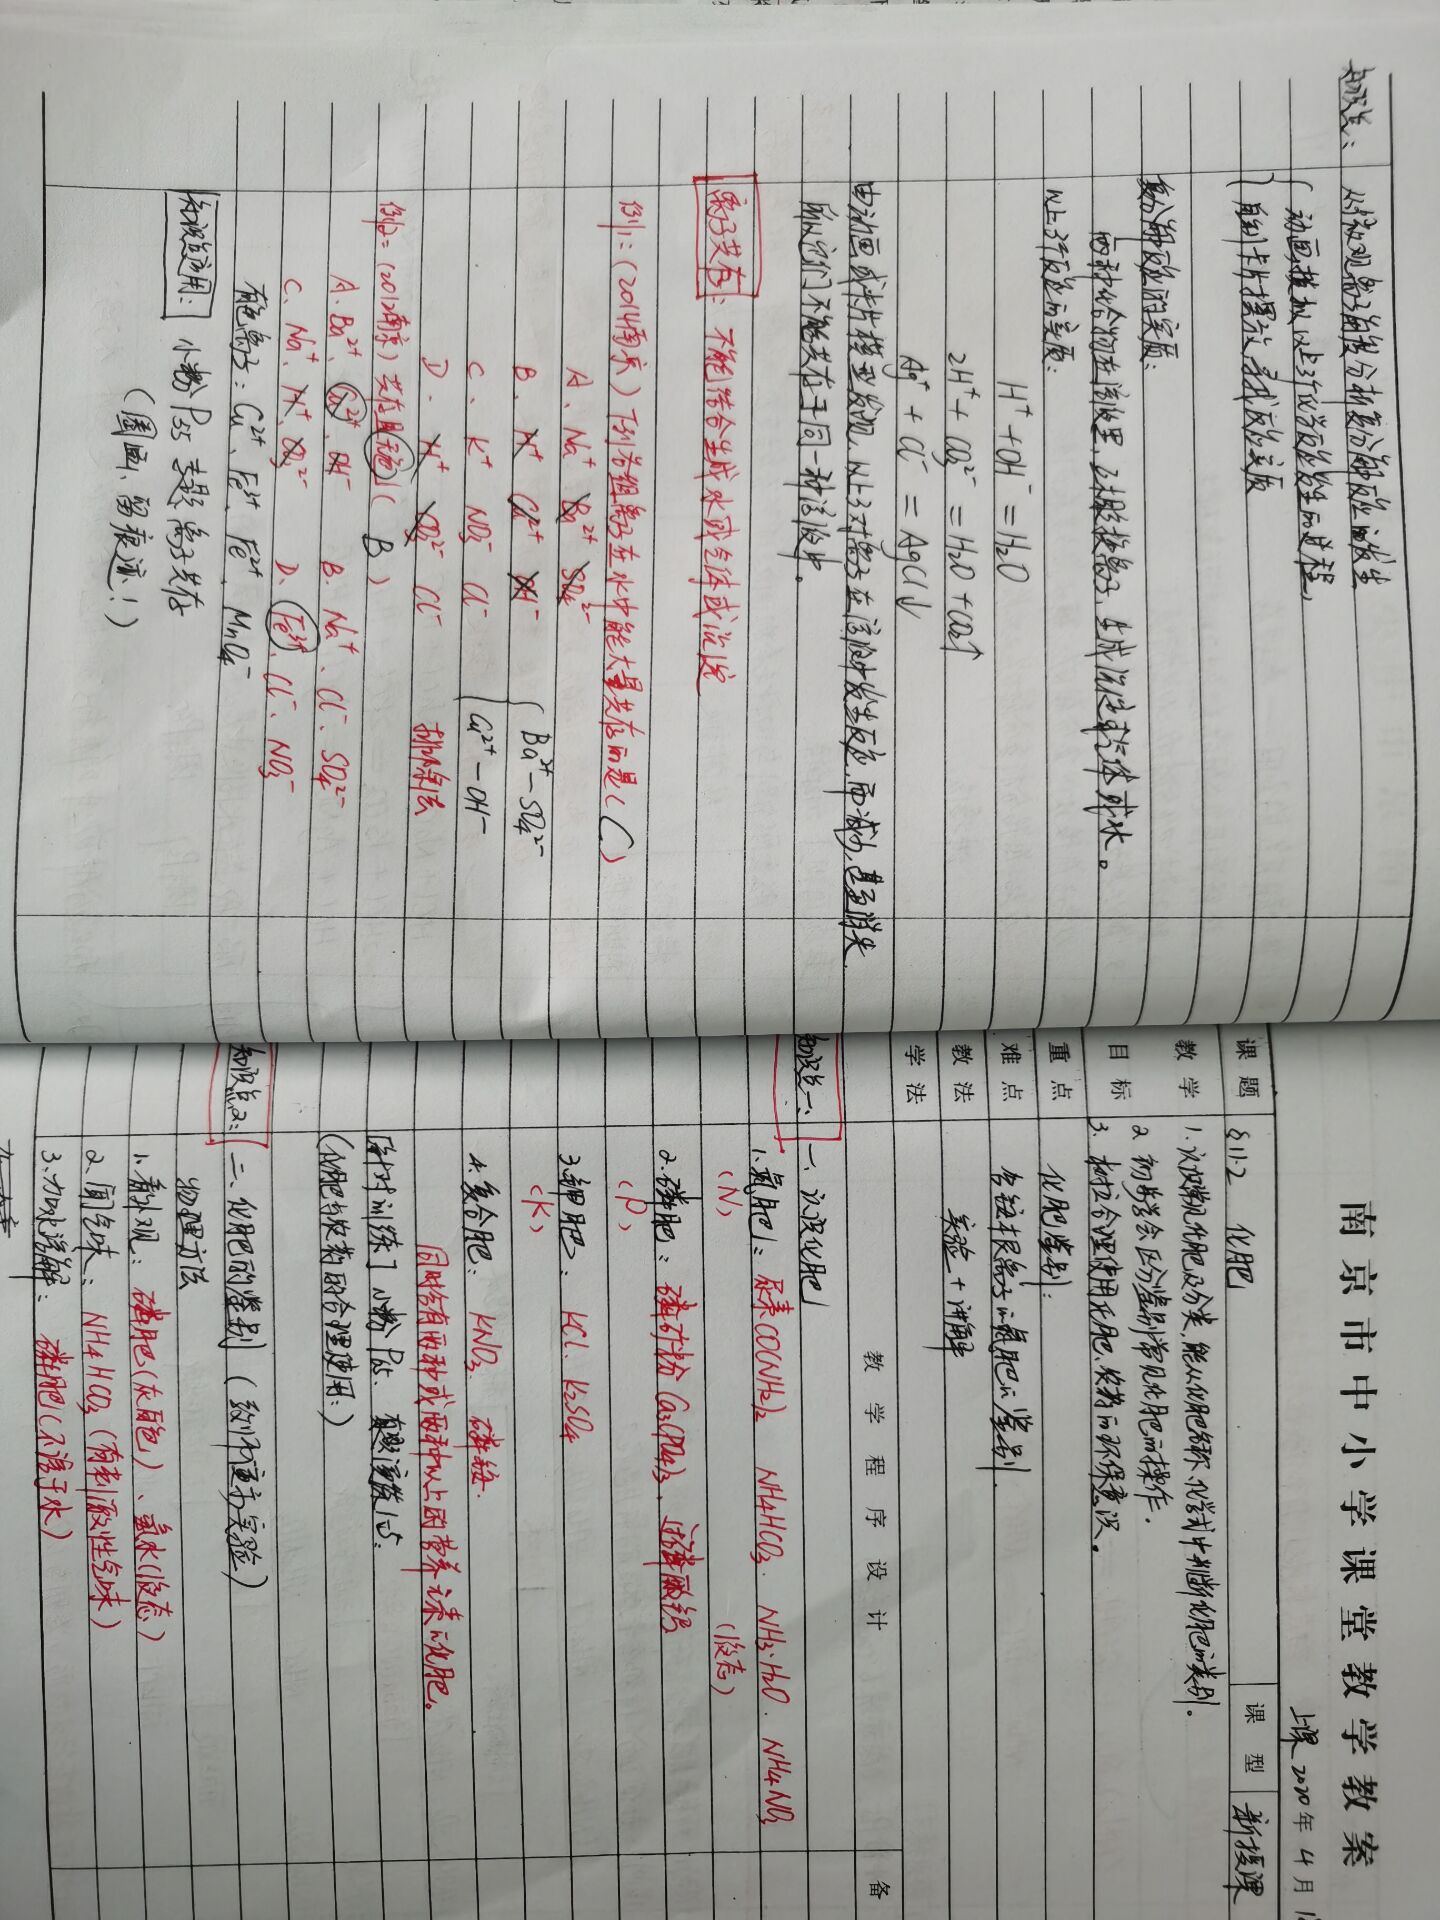 知识点：从微观离子角度分析复分解反应的发生
动画模拟以上3个化学反应发生的过程，
自制卡片摆放，寻找反应实质
复分解反应的实质：
两种化合物在溶液里，互相交换离子，生成沉淀或气体或水。
以上3个反应的实质：
H⁺ + OH⁻ = H₂O
2H⁺ + CO₃²⁻ = H₂O + CO₂↑
Ag⁺ + Cl⁻ = AgCl↓
由动画或卡片模型发现，以上3对离子在溶液中发生反应，而减少，甚至消失
所以它们不能共存于同一种溶液中。
离子共存：不能结合生成水或气体或沉淀
例1：(2014南京) 下列各组离子在水中能大量共存的是( C )
A、Na⁺ Ba²⁺ SO₄²⁻
B、H⁺ Cu²⁺ OH⁻
C、K⁺ NO₃⁻ Cl⁻
D、H⁺ CO₃²⁻ Cl⁻
Ba²⁺—SO₄²⁻
Cu²⁺—OH⁻
排除法
例2：(2012南京) 共存且无色( B )
A、Ba²⁺、Cu²⁺、OH⁻ B、Na⁺、Cl⁻、SO₄²⁻
C、Na⁺、H⁺、CO₃²⁻ D、Fe³⁺、Cl⁻、NO₃⁻
有色离子：Cu²⁺、Fe³⁺、Fe²⁺、MnO₄⁻
知识点应用：小粉 P55 专题 离子共存
(圈画、留痕迹！)
南京市中小学课堂教学教案
上课 2020年4月
课题 §11.2 化肥 课型 新授课
教学目标
1. 认识常见化肥及分类，能从化肥名称、化学式中判断化肥的类别。
2. 初步学会区分鉴别常见化肥的操作。
3. 树立合理使用化肥、农药的环保意识。
重点 化肥鉴别：
难点 含铵根离子的氮肥的鉴别
教法 实验 + 讲解
学法
教学程序设计 备
知识点一、 一、认识化肥
1.氮肥：尿素CO(NH₂)₂ NH₄HCO₃、NH₃·H₂O、NH₄NO₃
(N) (液态)
2.磷肥：磷矿粉 Ca₃(PO₄)₂、过磷酸钙
(P)
3.钾肥：KCl、K₂SO₄
(K)
4.复合肥：KNO₃、磷铵
同时含有两种或两种以上的营养元素的化肥。
[针对训练] 小粉
(化肥与农药的合理使用：)
知识点2： 二、化肥的鉴别
物理方法
1.看外观：磷肥(灰白色)、氨水(液态)
2.闻气味：NH₄HCO₃(有刺激性气味)
3.加水溶解：磷肥(不溶于水)